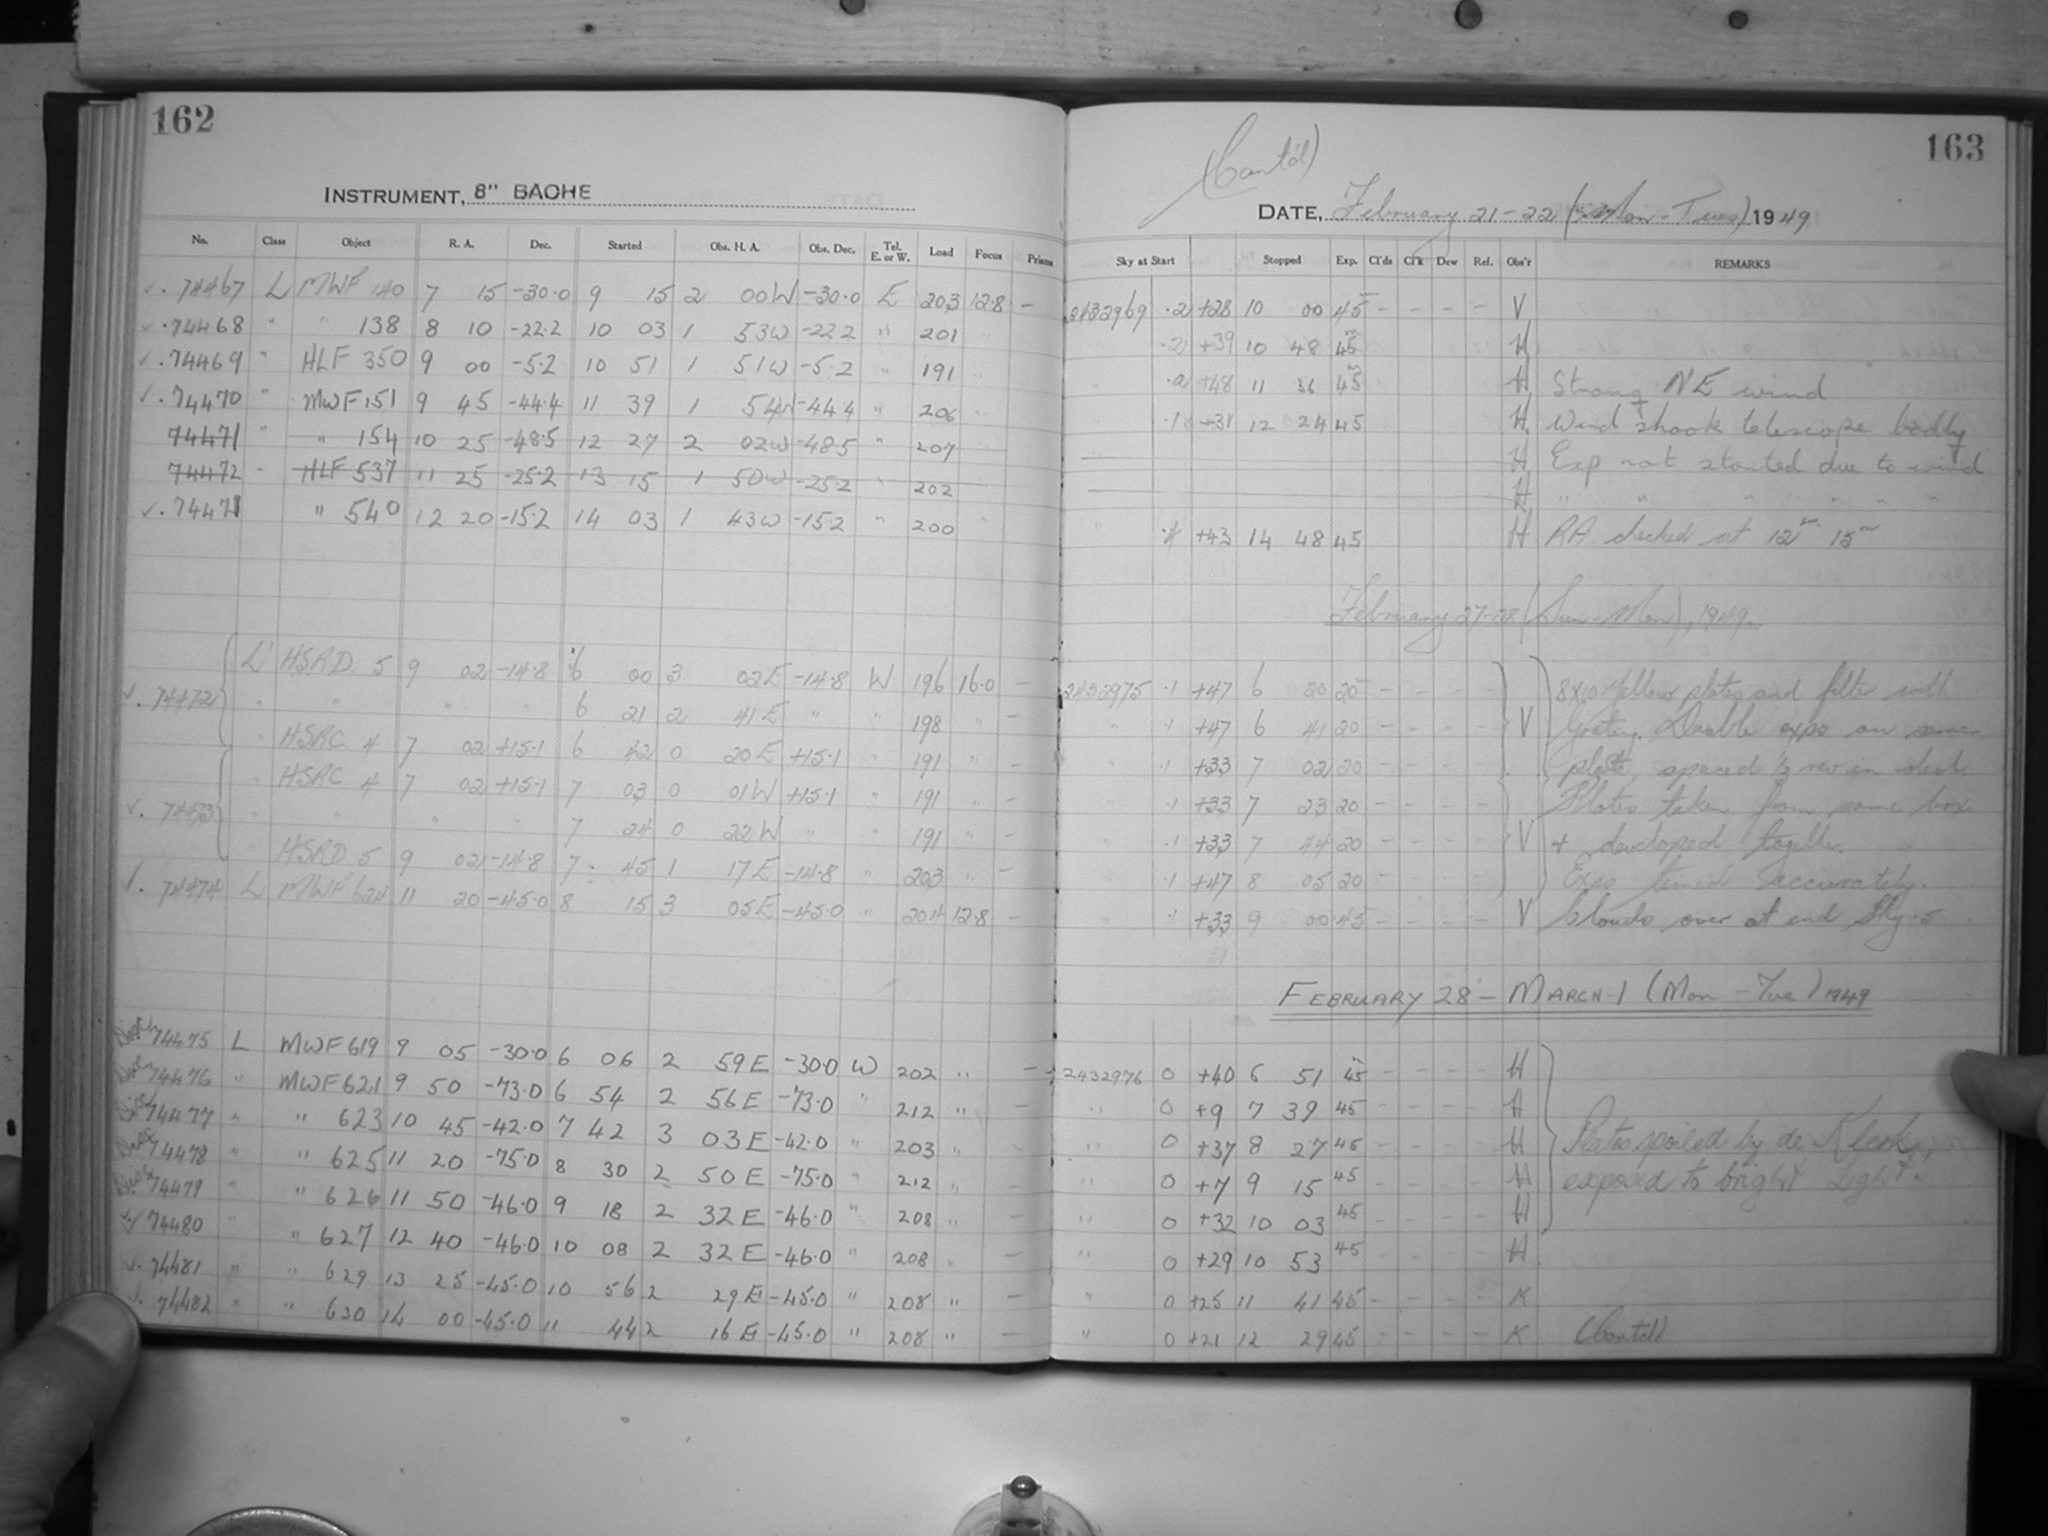 162
INSTRUMENT, 8" BACHE
No. Class Object R. A. Dec. Started Obs. H. A. Obs. Dec. Tel. E. or W. Load Focus Prisms
74467 L MWF 140 7 15 -30.0 9 15 2 00W -30.0 E 203 12.8 -
74468 " " 138 8 10 -22.2 10 03 1 53W -22.2 " 201
74469 " HLF 350 9 00 -5.2 10 51 1 51W -5.2 " 191
74470 " MWF 151 9 45 -44.4 11 39 1 54W -44.4 " 206
74471 " " 154 10 25 -48.5 12 27 2 02W -48.5 " 207
74472 " HLF 537 11 25 -25.2 13 15 1 50W -25.2 " 202
74471 " 540 12 20 -15.2 14 03 1 43W -15.2 " 200
L' HSRD 5 9 02 -14.8 6 00 3 02E -14.8 W 196 16.0 -
74472 " " " " 6 21 2 41E " " 198 " -
" HSRC 4 7 02 +15.1 6 42 0 20E +15.1 " 191 " -
" HSRC 4 7 02 +15.1 7 03 0 01W +15.1 " 191 " -
74473 " " " " 7 24 0 22W " " 191 " -
" HSRD 5 9 02 -14.8 7 45 1 17E -14.8 " 203 " -
74474 L MWF 624 11 20 -45.0 8 15 3 05E -45.0 " 204 12.8 -
74475 L MWF 619 9 05 -30.0 6 06 2 59E -30.0 W 202 " -
74476 " MWF 621 9 50 -73.0 6 54 2 56E -73.0 " 212 " -
74477 " " 623 10 45 -42.0 7 42 3 03E -42.0 " 203 " -
74478 " " 625 11 20 -75.0 8 30 2 50E -75.0 " 212 " -
74479 " " 626 11 50 -46.0 9 18 2 32E -46.0 " 208 " -
74480 " " 627 12 40 -46.0 10 08 2 32E -46.0 " 208 " -
74481 " " 629 13 25 -45.0 10 56 2 29E -45.0 " 208 " -
74482 " " 630 14 00 -45.0 11 44 2 16E -45.0 " 208 " -
163
(Cont'd)
DATE, February 21-22 (Mon-Tues) 1949
Sky at Start Stopped Exp. Cl'ds Cl'k Dew Ref. Obs'r REMARKS
2432969 .2 +28 10 00 45 - - - - V
.2 +39 10 48 45 H
.2 +48 11 36 45 H Strong NE wind
.1 +31 12 24 45 H Wind shook telescope badly
H Exp not started due to wind
H " " " " " "
+43 14 48 45 H RA checked at 12h 15m
February 27-28 (Sun-Mon), 1949
2432975 .1 +47 6 20 20 - - - - 8x10 Yellow plates and filter with
" .1 +47 6 41 20 - - - - V Grating. Double expo on same
" .1 +33 7 02 20 - - - - plate, spaced ½ rev in decl.
" .1 +33 7 23 20 - - - - Plates taken from same box
" .1 +33 7 44 20 - - - - V + developed together.
" .1 +47 8 05 20 - - - - Expo timed accurately.
" .1 +33 9 00 45 - - - - V Clouds over at end Sky .5
FEBRUARY 28 - MARCH-1 (Mon - Tue) 1949
2432976 0 +40 6 51 45 - - - - H
" 0 +9 7 39 45 - - - - H
" 0 +37 8 27 45 - - - - H Plates spoiled by de Klerk,
" 0 +7 9 15 45 - - - - H exposed to bright light.
" 0 +32 10 03 45 - - - - H
" 0 +29 10 53 45 - - - - H
" 0 +25 11 41 45 - - - - K
" 0 +21 12 29 45 - - - - K (Cont'd)